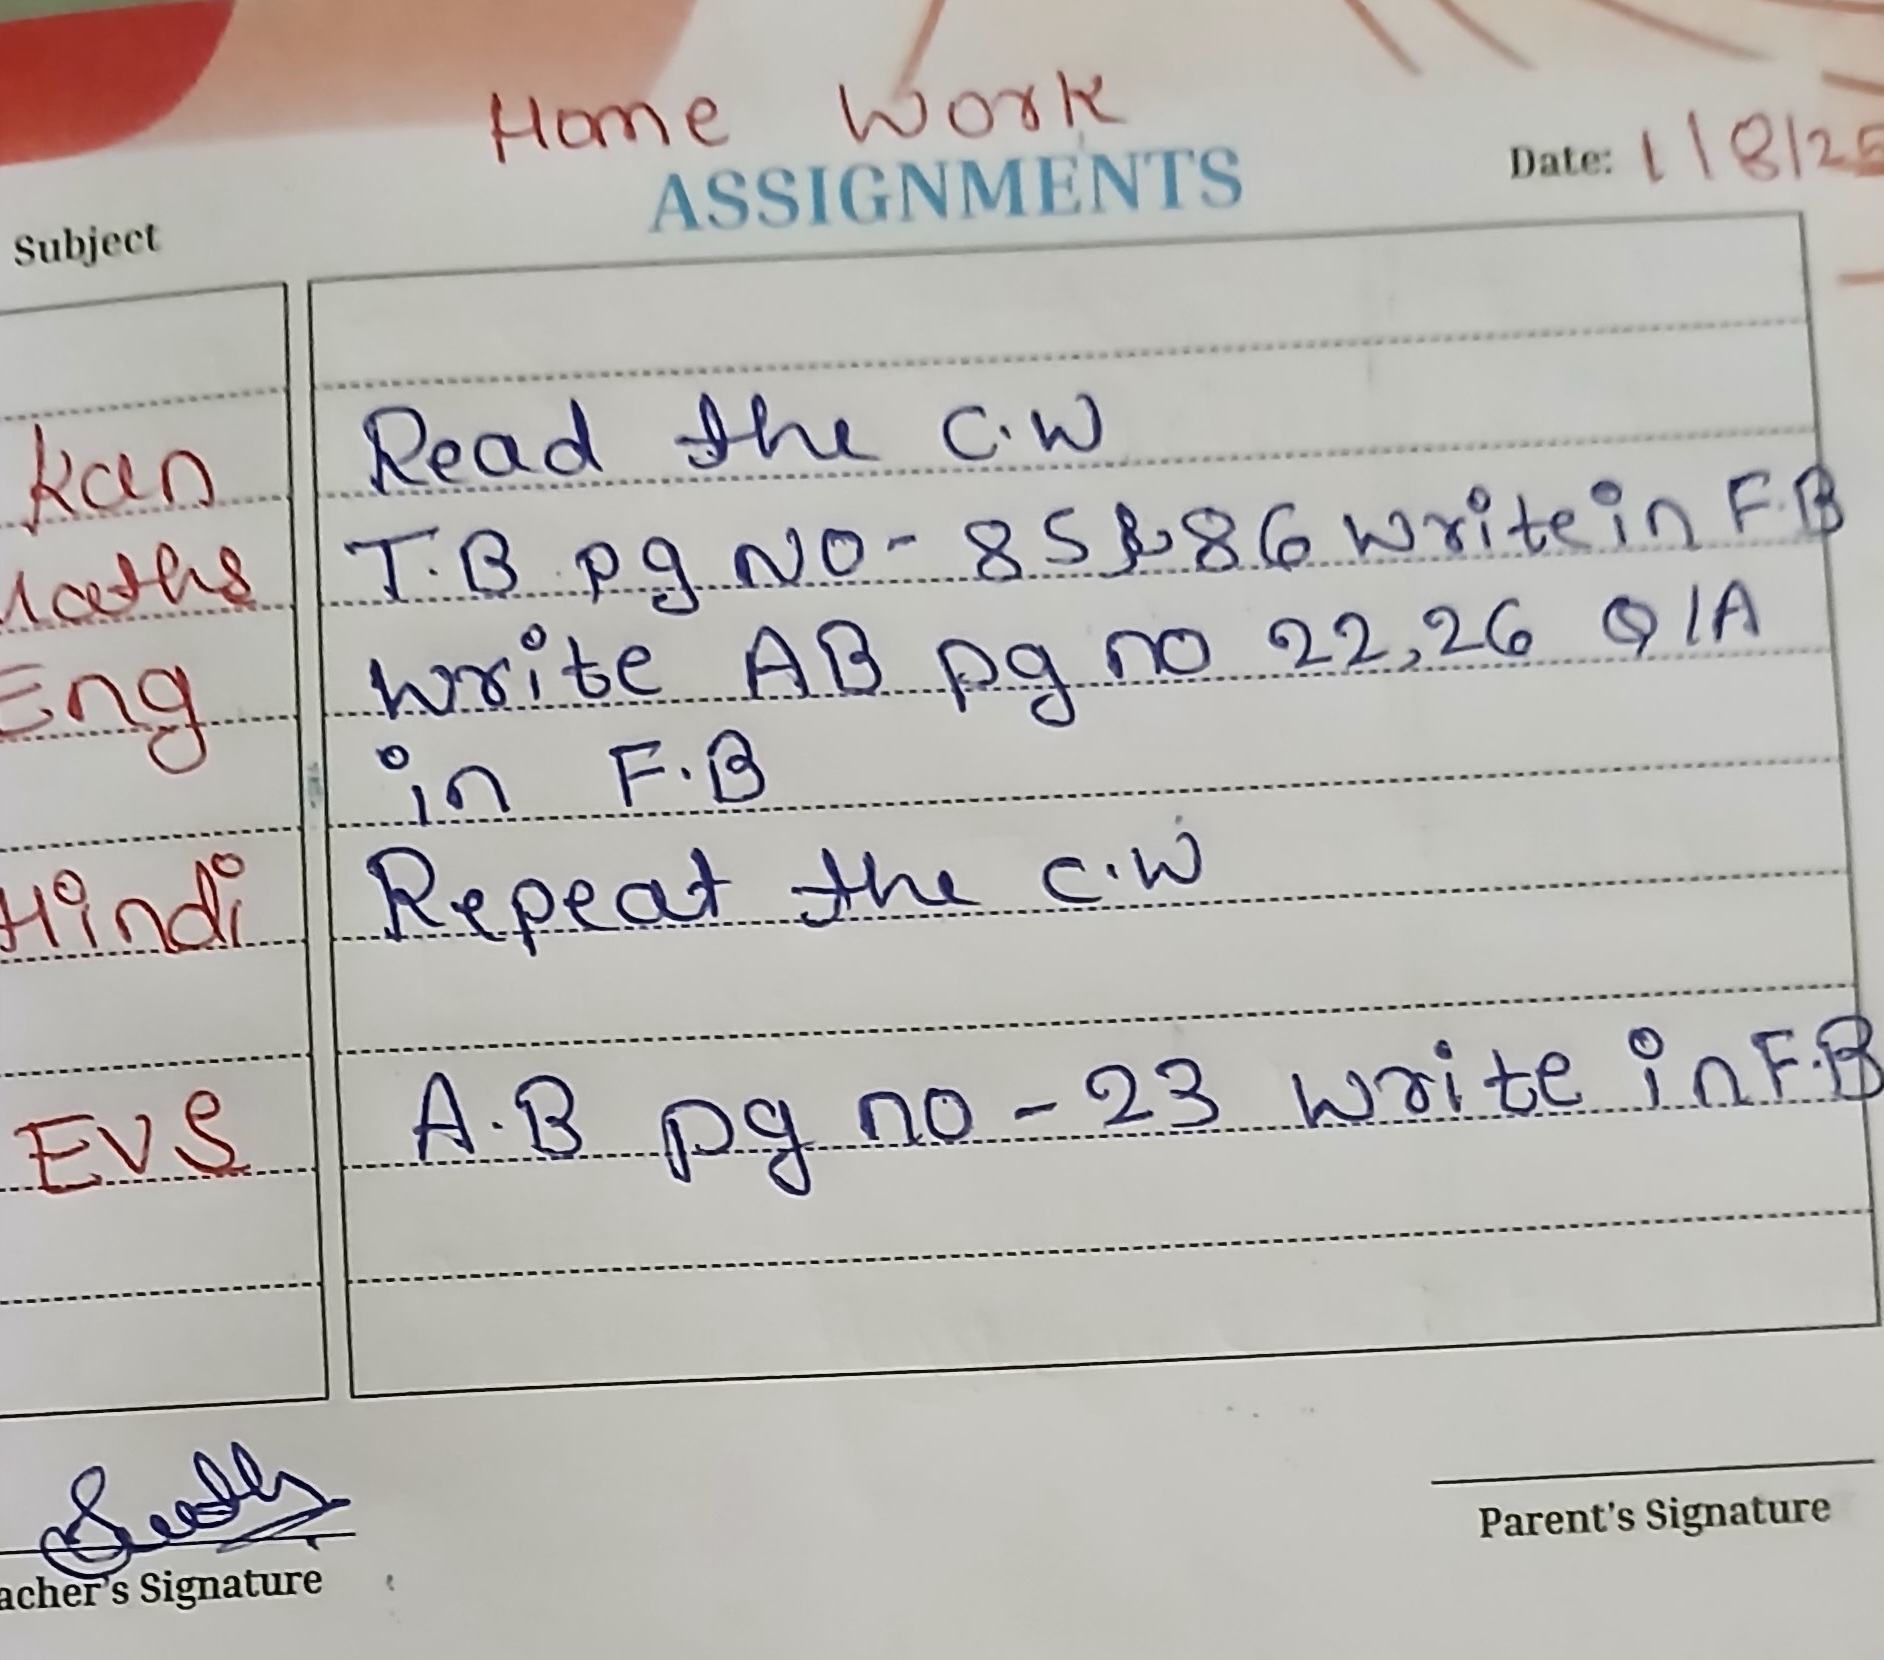 Home Work
ASSIGNMENTS
Date: 1/8/25
Subject
Kan Read the C.W
Maths T.B pg NO- 85 & 86 write in F.B
Eng write AB pg no 22,26 Q/A
in F.B
Hindi Repeat the C.W
EVS A.B pg no - 23 write in F.B
Parent's Signature
acher's Signature